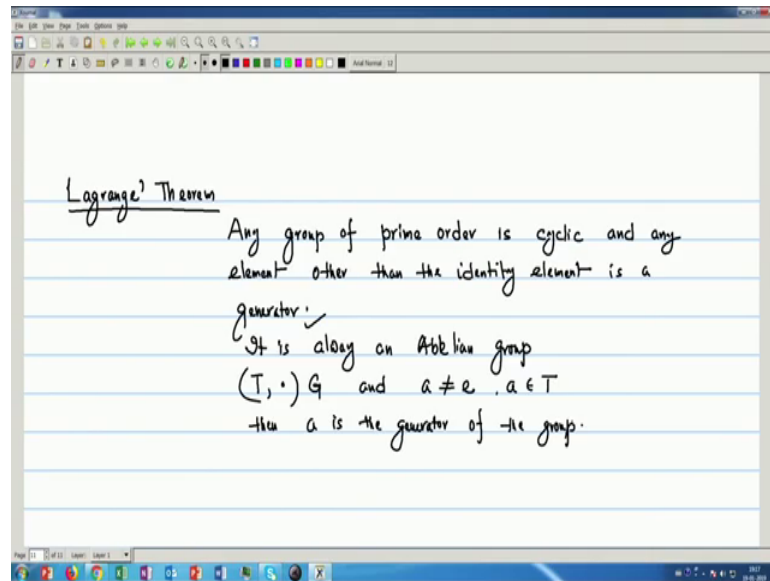 Journal
File Edit View Page Tools Options Help
Arial Normal 12
Lagrange' Theorem
Any group of prime order is cyclic and any
element other than the identity element is a
generator.
It is alway an Abelian group
(T, ·) G and a ≠ e , a ∈ T
then a is the generator of the group.
Page 11 of 11 Layer: Layer 1
19:17